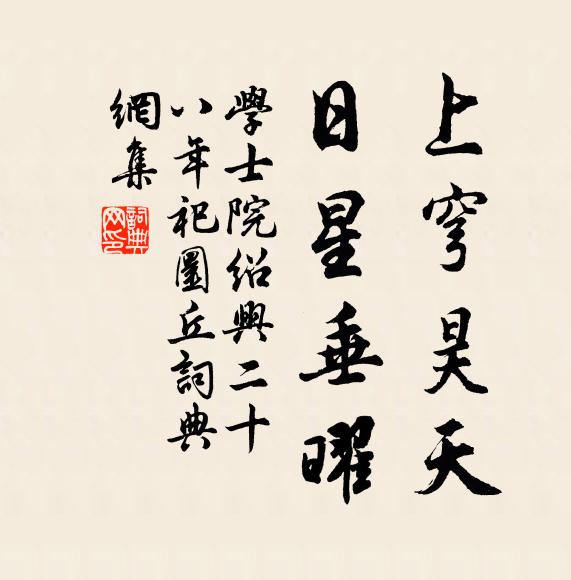 上穹昊天
日星垂曜
學士院紹興二十
八年祀圜丘詞典
網集
詞典
网印